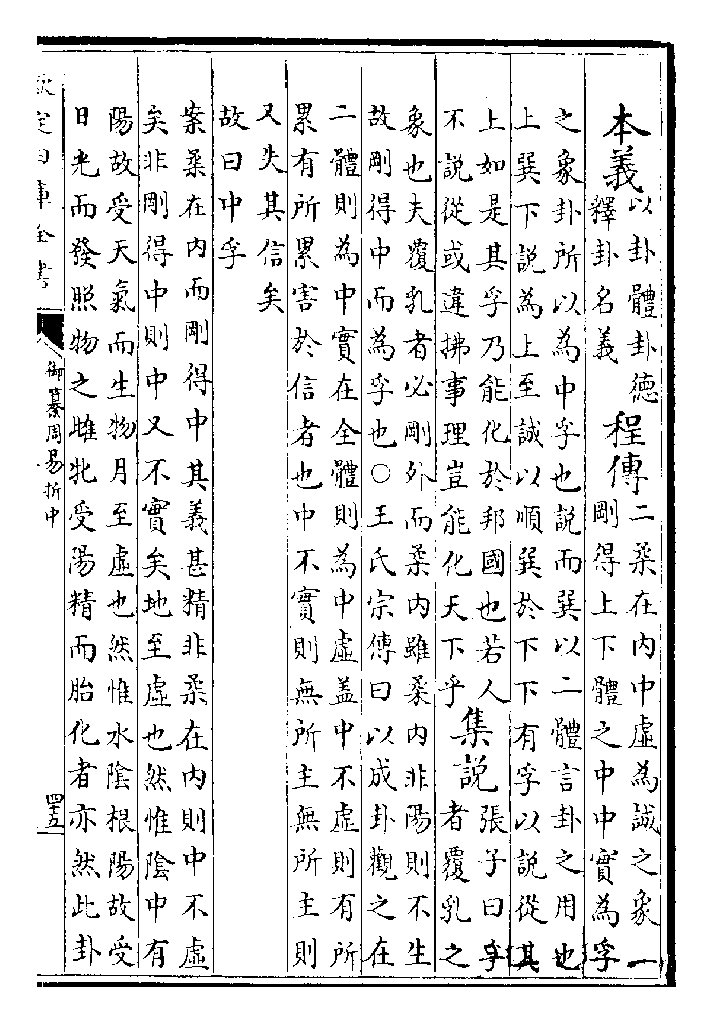 本義以卦體卦德釋卦名義程傳二柔在内中虛為誠之象一
剛得上下體之中中實為孚
之象卦所以為中孚也說而巽以二體言卦之用也
上巽下說為上至誠以順巽於下下有孚以說從其
上如是其孚乃能化於邦國也若人
不說從或違拂事理豈能化天下乎
集說張子曰孚
者覆乳之
象也夫覆乳者必剛外而柔内雖柔内非陽則不生
故剛得中而為孚也○王氏宗傳曰以成卦觀之在
二體則為中實在全體則為中虛蓋中不虛則有所
累有所累害於信者也中不實則無所主無所主則
又失其信矣
故曰中孚
案柔在内而剛得中其義甚精非柔在内則中不虛
矣非剛得中則中又不實矣地至虛也然惟陰中有
陽故受天氣而生物月至虛也然惟水陰根陽故受
日光而發照物之雌牝受陽精而胎化者亦然此卦
欽定四庫全書
御纂周易折中
四十五